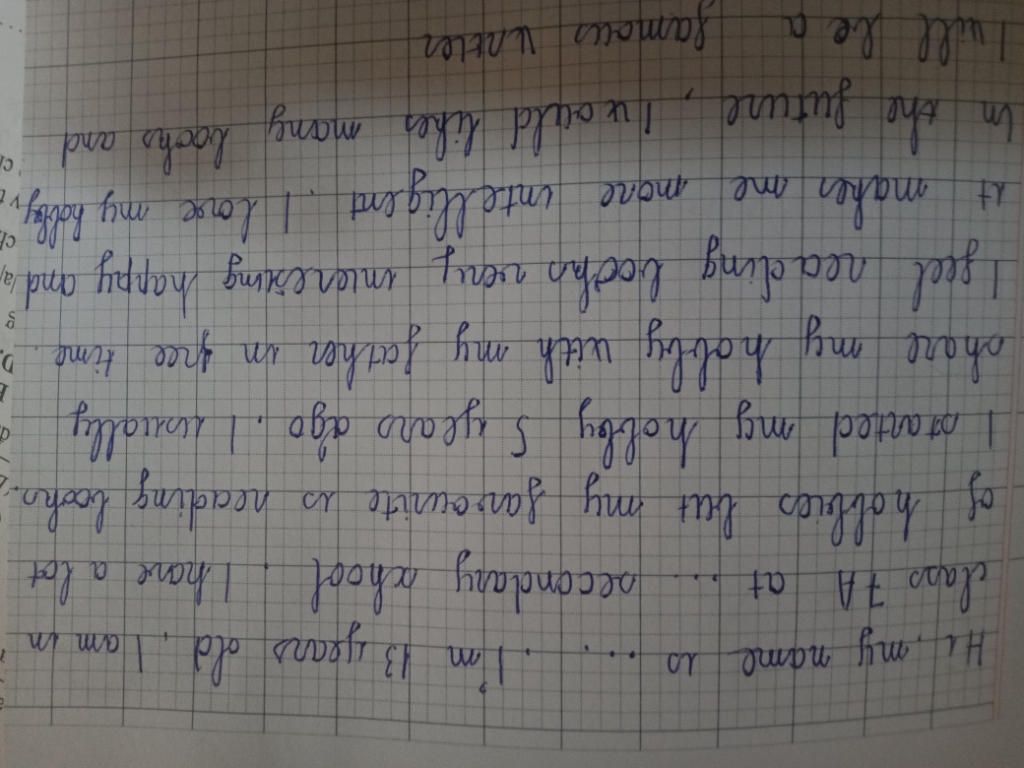 Hi, my name is .... . I'm 13 years old. I am in
class 7A at .... secondary school. I have a lot
of hobbies but my favourite is reading books.
I started my hobby 5 years ago. I usually
share my hobby with my father in free time.
I feel reading books very interesing happy and
it makes me more intelligent. I love my hobby
In the future, I would likes many books and
I will be a famous writer